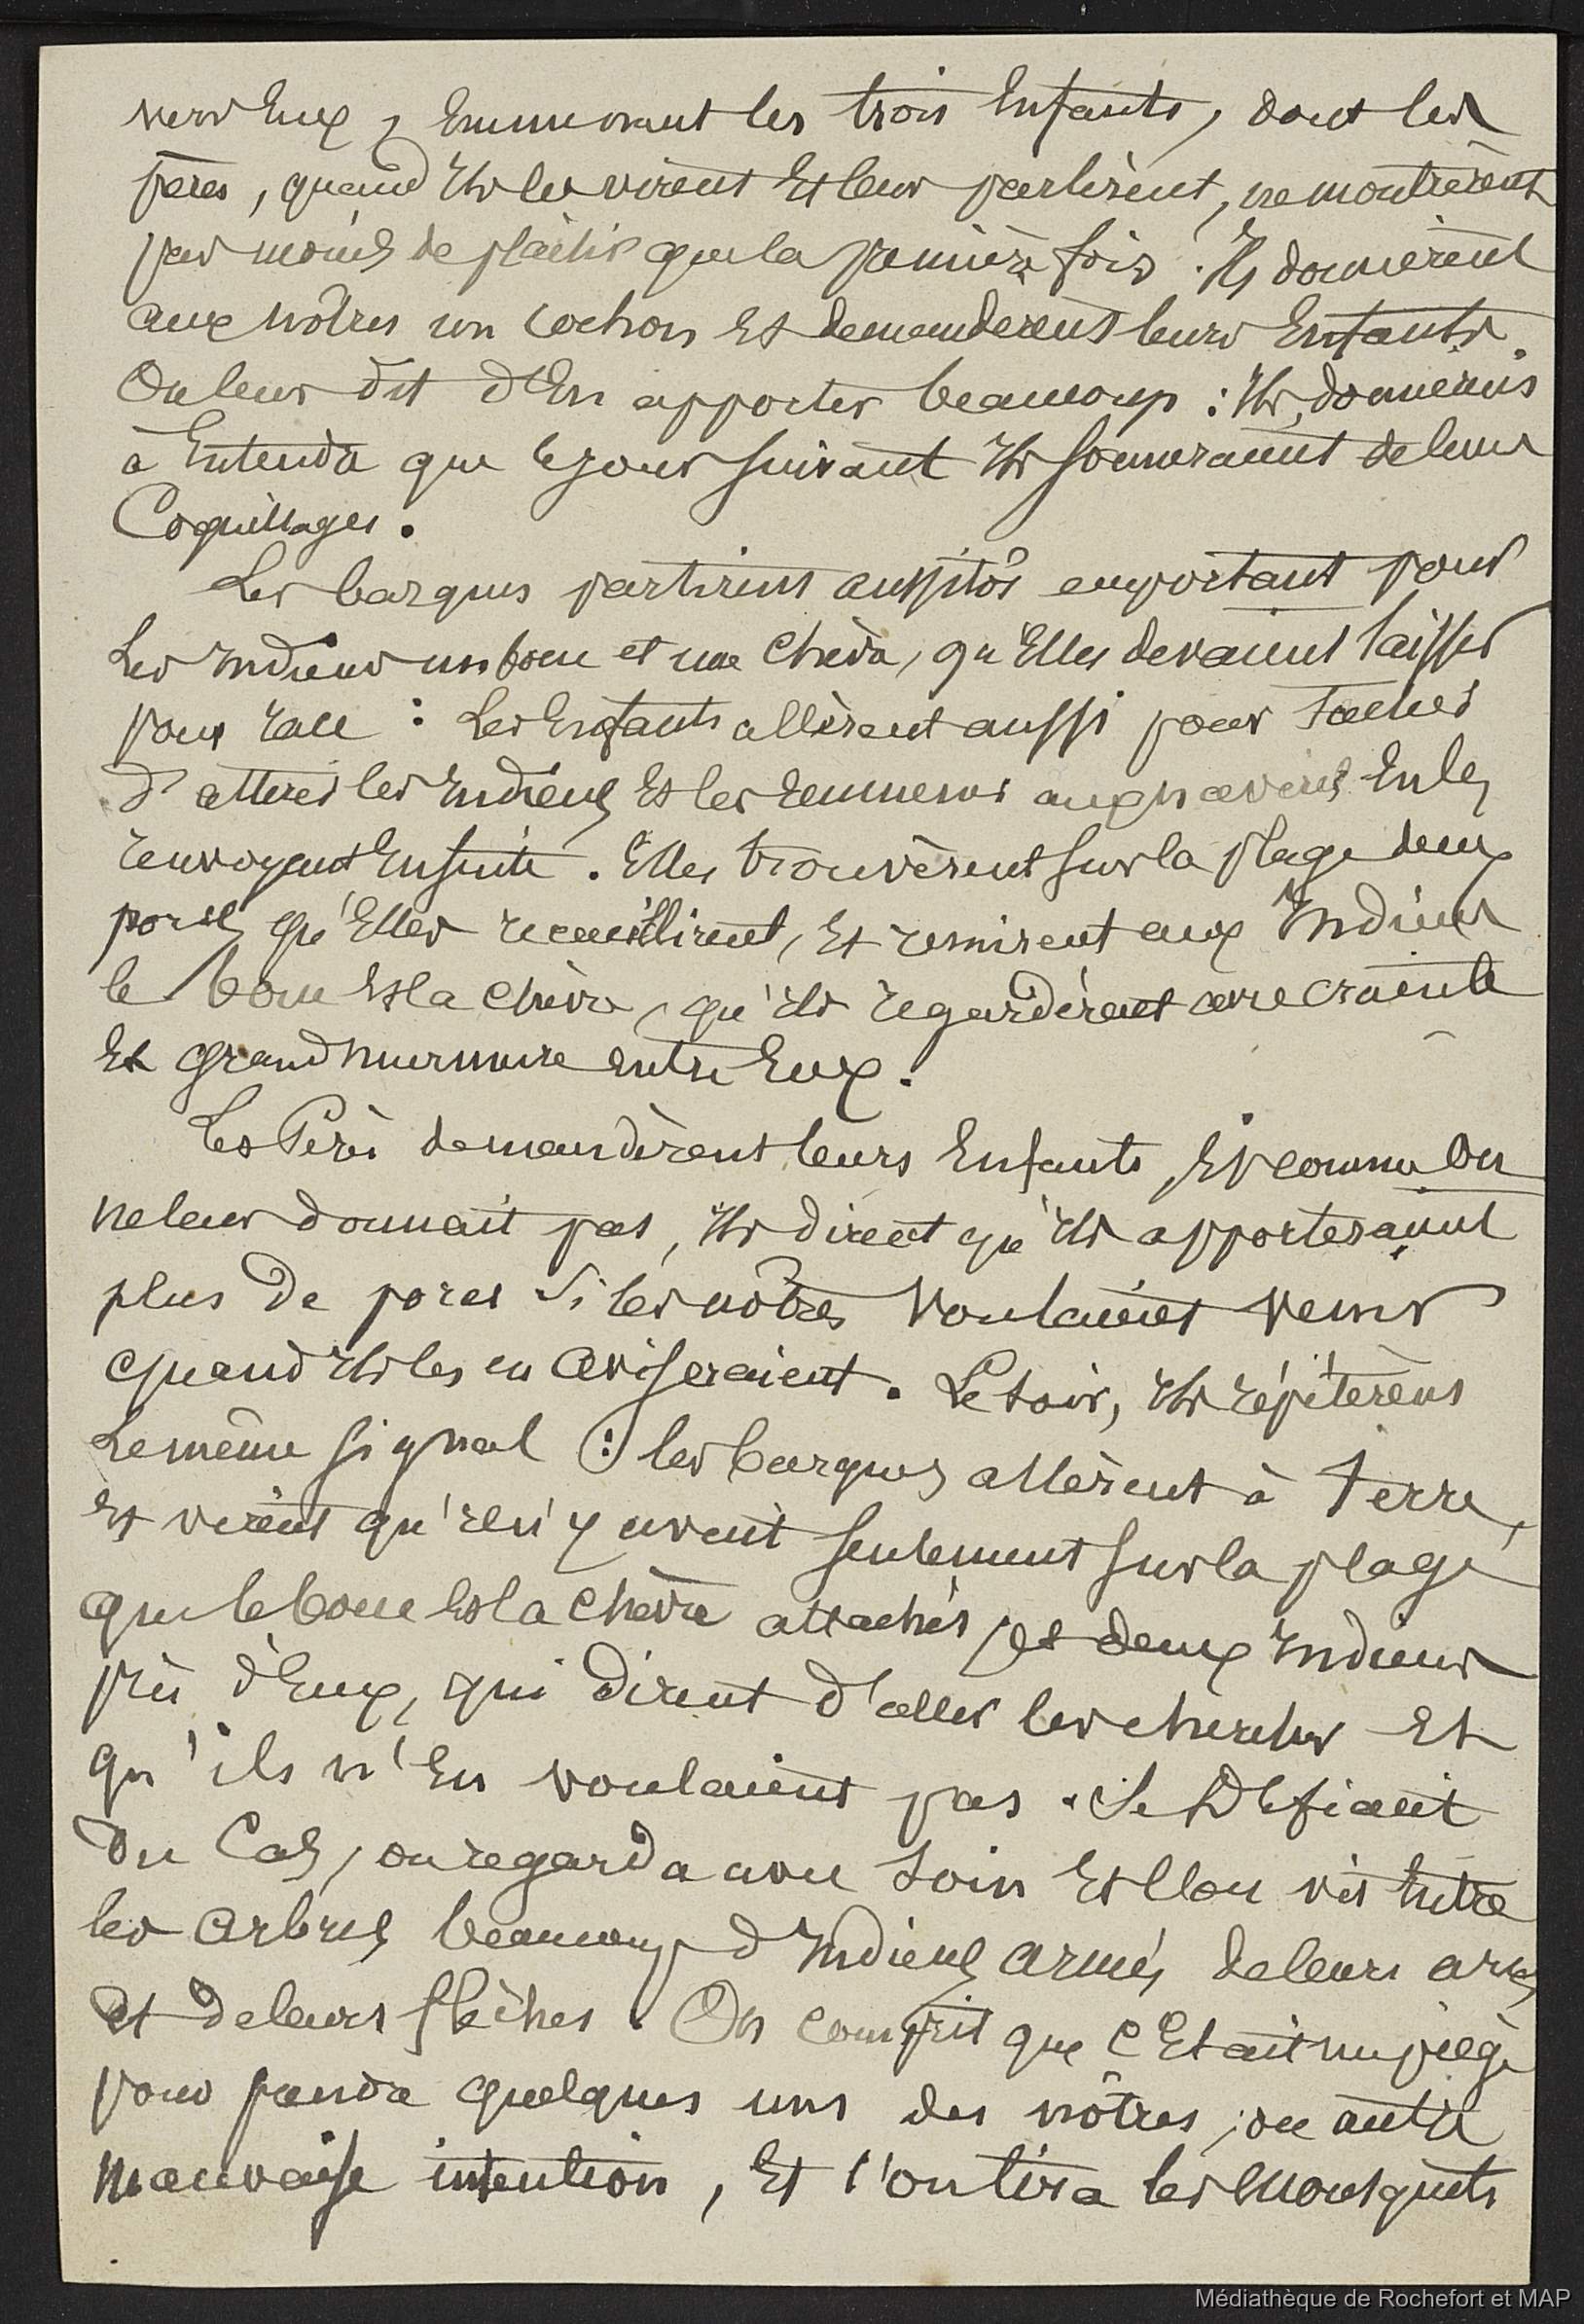 vers Eux, Emmenant les trois Enfants, dont les
pères, quand Ils les virent Et leur parlèrent, ne montrèrent
pas moins de plaisir que la première fois. Ils donnèrent
aux nôtres un cochon Et demandèrent leurs Enfants.
On leur dit d'En apporter beaucoup : Ils donnèrent
à Entendre que le jour suivant Ils sonneraient de leurs
Coquillages.
Les barques partirent aussitôt emportant pour
Les Indiens un bouc et une Chèvre, qu'Elles devaient laisser
pour race : Les Enfants allèrent aussi pour Tacher
d'attirer les Indiens Et les emmener aux navires En les
renvoyant Ensuite. Elles trouvèrent sur la plage deux
porcs qu'Elles recueillirent, Et remirent aux Indiens
le bouc Et la chèvre, qu'ils regardèrent avec crainte
Et grand murmure entre Eux.
Les Pères demandèrent leurs Enfants, Et comme On
ne leur donnait pas, Ils dirent qu'Ils apporteraient
plus de porcs si les nôtres voulaient venir
quand Ils les en aviseraient. Le soir, Ils répétèrent
Le même signal : les barques allèrent à Terre,
Et virent qu'il n'y avait seulement sur la plage
que le bouc Et la Chèvre attachés, et deux Indiens
près d'Eux, qui dirent d'aller les chercher Et
qu'ils n'En voulaient pas. Se Défiant
Du Cas, on regarda avec soin Et l'on vit Entre
les arbres beaucoup d'Indiens armés de leurs arcs
Et de leurs flèches. On comprit que c'Etait un piège
pour prendre quelques uns des nôtres, ou autre
mauvaise intention, Et l'on tira les Mousquets
Médiathèque de Rochefort et MAP